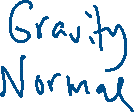 Gravity
Normal